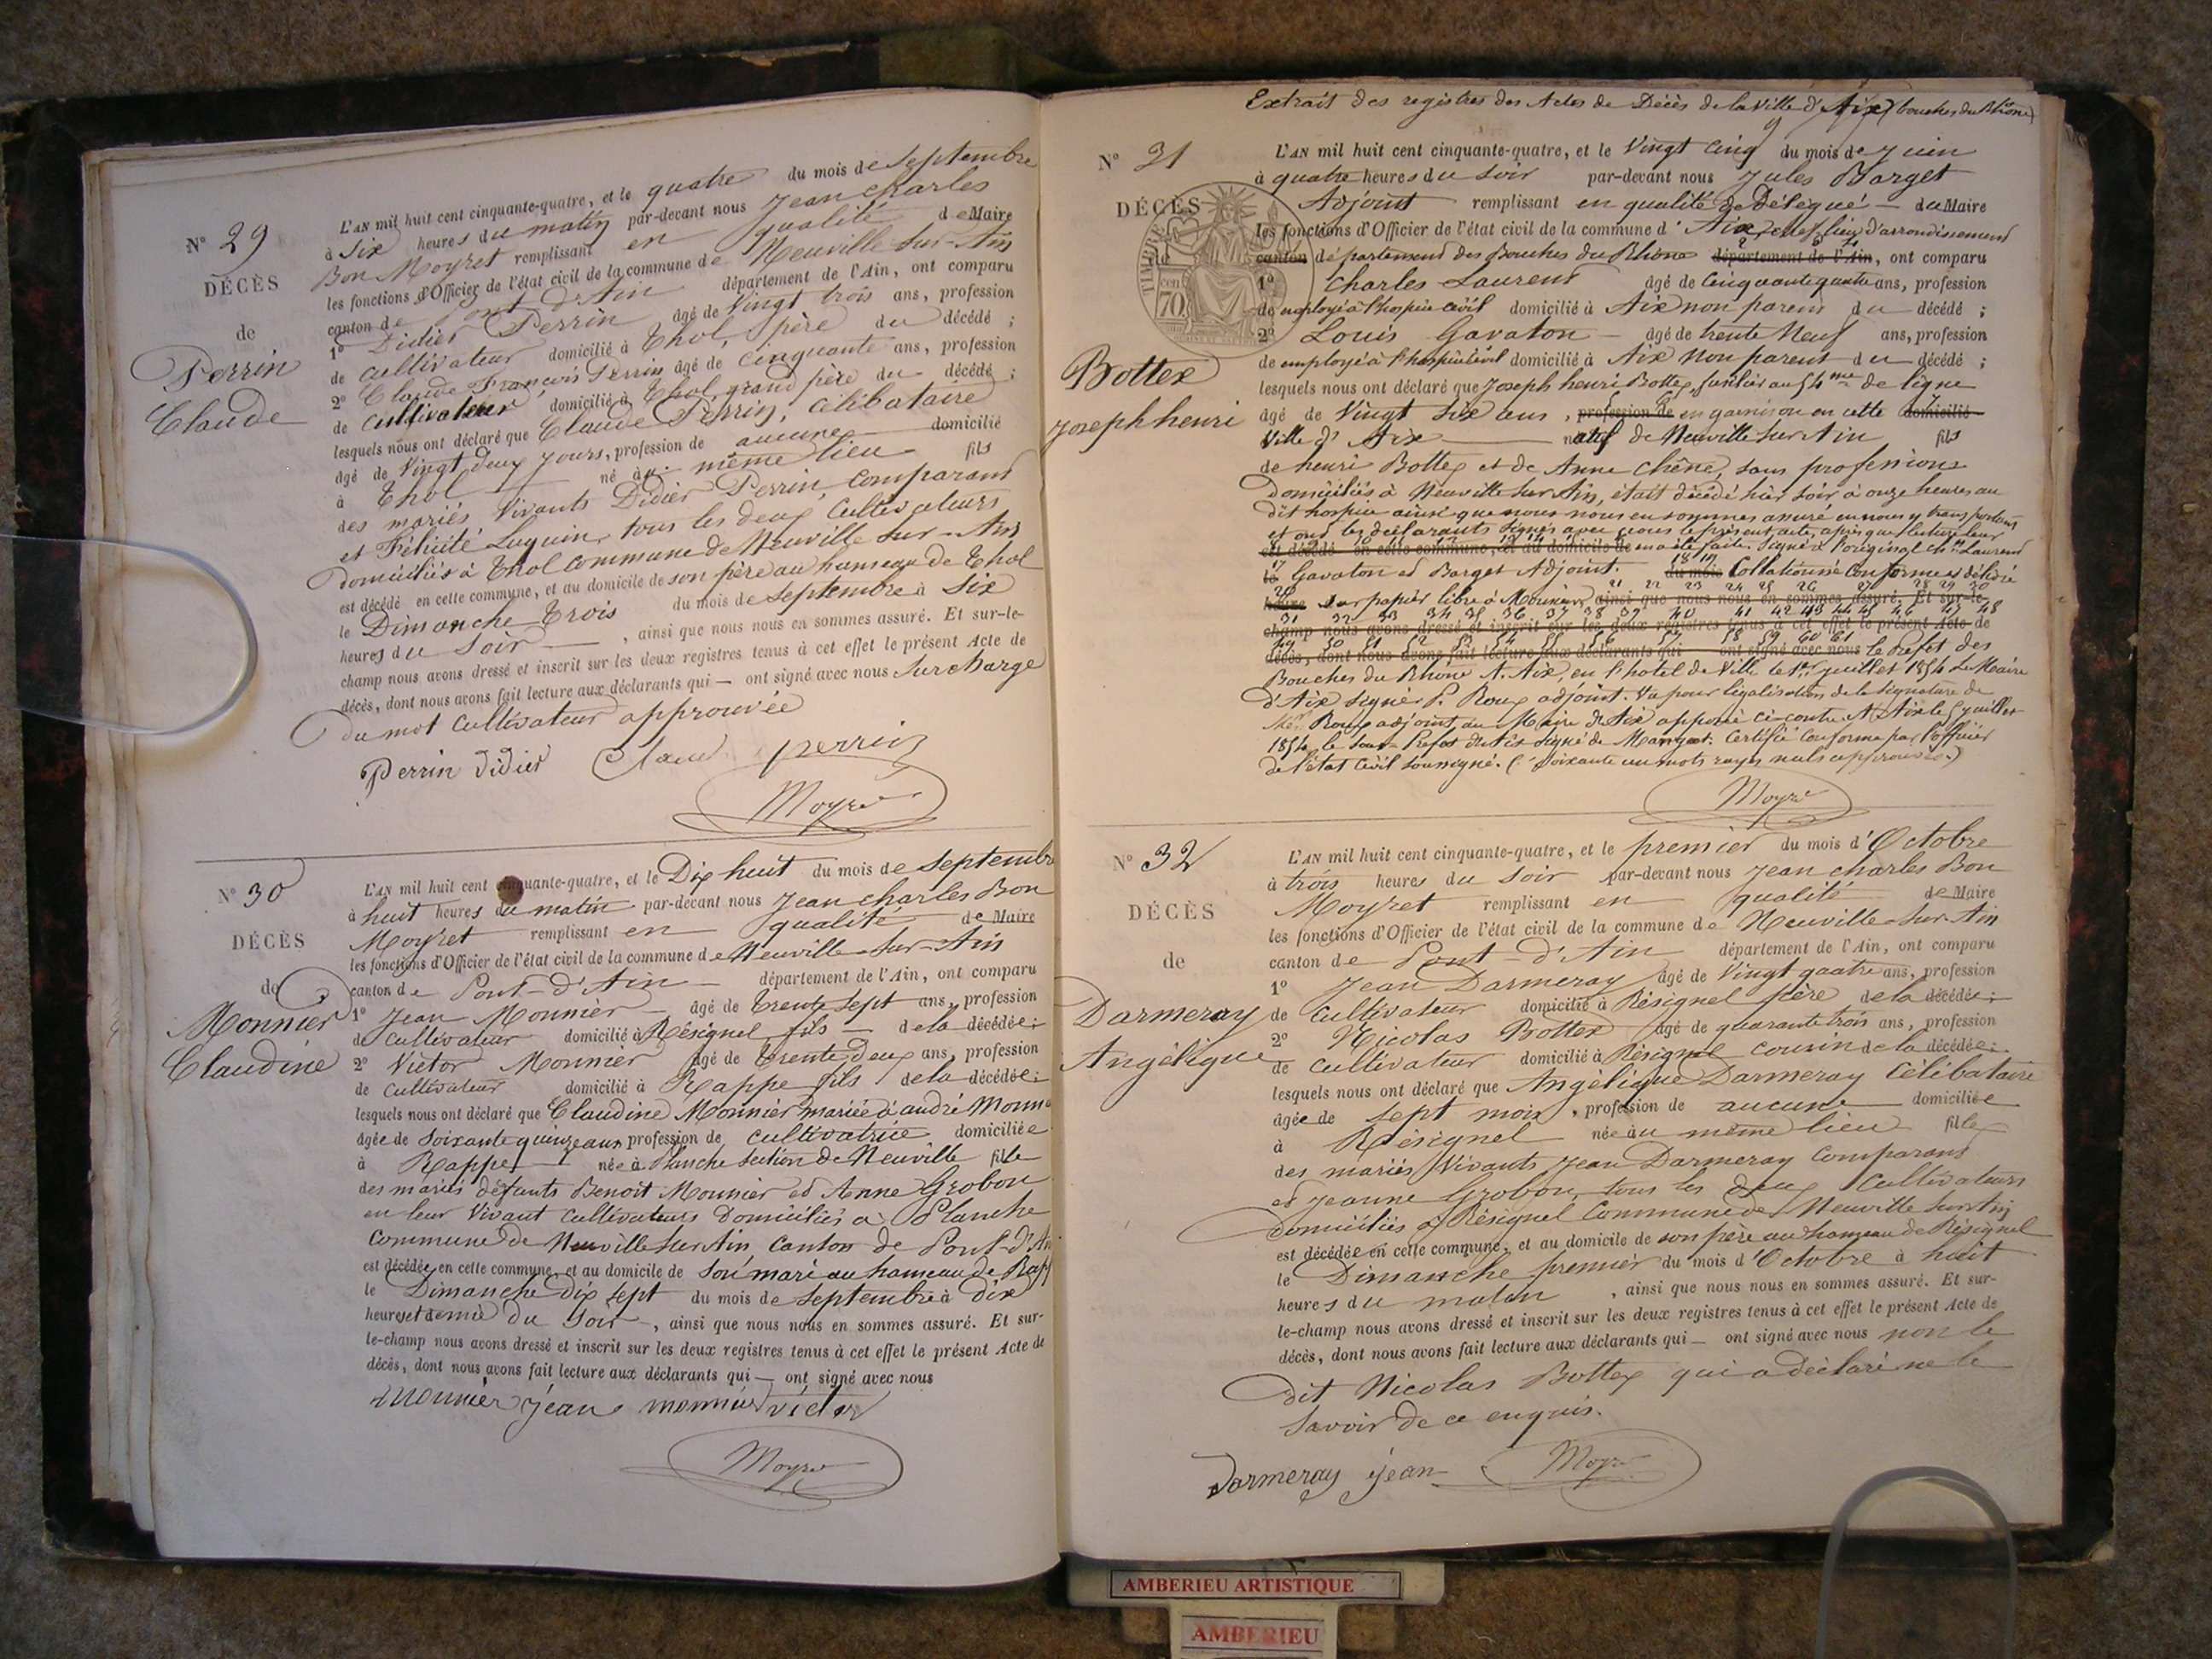 N° 29
DÉCÈS
de
Perrin
Claude
L'AN mil huit cent cinquante-quatre, et le quatre du mois de Septembre
à Six heures du matin par-devant nous Jean Charles
Bon Moyret remplissant en qualité de Maire
les fonctions d'Officier de l'état civil de la commune de Neuville sur-Ain
canton de Pont d'Ain département de l'Ain, ont comparu
1° Didier Perrin âgé de Vingt trois ans, profession
de Cultivateur domicilié à Thol, père du décédé ;
2° Claude François Perrin âgé de Cinquante ans, profession
de Cultivateur domicilié à Thol, grand père du décédé ;
lesquels nous ont déclaré que Claude Perrin, Célibataire
âgé de Vingt deux jours, profession de aucune domicilié
à Thol né au même lieu fils
des mariés Vivants Didier Perrin, Comparant
et Félicité Luquin, tous les deux Cultivateurs
domiciliés à Thol Commune de Neuville sur-Ain
est décédé en cette commune, et au domicile de son père au hameau de Thol
le Dimanche Trois du mois de Septembre à Six
heures du Soir , ainsi que nous nous en sommes assuré. Et sur-le-
champ nous avons dressé et inscrit sur les deux registres tenus à cet effet le présent Acte de
décès, dont nous avons fait lecture aux déclarants qui — ont signé avec nous Surcharge
du mot Cultivateur approuvée
Perrin Didier Claud perrin
Moyret
N° 30
DÉCÈS
de
Monnier
Claudine
L'AN mil huit cent cinquante-quatre, et le Dix huit du mois de Septembre
à huit heures du matin par-devant nous Jean Charles Bon
Moyret remplissant en qualité de Maire
les fonctions d'Officier de l'état civil de la commune de Neuville-sur-Ain
canton de Pont-d'Ain département de l'Ain, ont comparu
1° Jean Monnier âgé de Trente Sept ans, profession
de Cultivateur domicilié à Résignel fils de la décédée ;
2° Victor Monnier âgé de Trente deux ans, profession
de Cultivateur domicilié à Rappe fils de la décédée ;
lesquels nous ont déclaré que Claudine Monnier mariée à andré Monn
âgée de Soixante quinze ans, profession de Cultivatrice domiciliée
à Rappe née à Planche Section de Neuville fille
des mariés défunts Benoit Monnier et Anne Grobon
en leur Vivant Cultivateurs domiciliés à Planche
Commune de Neuville sur Ain Canton de Pont-d'Ain
est décédée en cette commune, et au domicile de Son mari au hameau de Rapp
le Dimanche dix sept du mois de Septembre à dix
heures et demie du Soir , ainsi que nous nous en sommes assuré. Et sur-
le-champ nous avons dressé et inscrit sur les deux registres tenus à cet effet le présent Acte de
décès, dont nous avons fait lecture aux déclarants qui — ont signé avec nous
Monnier Jean monnier victor
Moyret
Extrait des registres des Actes de Décès de la Ville d'Aix (Bouches du Rhône)
N° 31
DÉCÈS
TIMBRE
70
Bottex
Joseph henri
L'AN mil huit cent cinquante-quatre, et le Vingt Cinq du mois de Juin
à quatre heures du Soir par-devant nous Jules Barget
Adjoint remplissant en qualité de Délégué — du Maire
les fonctions d'Officier de l'état civil de la commune d'Aix, chef lieu d'arrondissement
canton département des Bouches du Rhône département de l'Ain, ont comparu
1° Charles Laurent âgé de Cinquante quatre ans, profession
de employé à l'hospice civil domicilié à Aix non parent du décédé ;
2° Louis Gavaton — âgé de trente Neuf ans, profession
de employé à l'hospice civil domicilié à Aix non parent du décédé ;
lesquels nous ont déclaré que Joseph henri Bottex, fusilier au 54me de ligne
âgé de Vingt Six ans, profession de en garnison en cette domicilié
Ville d'Aix natif de Neuville sur Ain fils
de henri Bottex et de Anne Chêne, sans profession
domiciliés à Neuville sur Ain, était décédé hier soir à onze heures au
dit hospice ainsi que nous nous en sommes assuré en nous y transportant
et ont les déclarants signés avec nous le présent acte, après que lecture leur
est décédé en cette commune, et au domicile de en a été faite. Signés à l'original Ch. Laurent
le Gavaton et Barget Adjoint. du mois Collationné Conforme et délivré
heure sur papier libre à Monsieur ainsi que nous nous en sommes assuré. Et sur-le-
champ nous avons dressé et inscrit sur les deux registres tenus à cet effet le présent Acte de
décès, dont nous avons fait lecture aux déclarants qui ont signé avec nous le Préfet des
Bouches du Rhône A. Aix, en l'hotel de Ville le 1er juillet 1854 Le Maire
d'Aix signé P. Roux adjoint. Vu pour légalisation de la signature de
Mr Roux adjoint au Maire d'Aix apposée ci-contre. A Aix le 5 juillet
1854 le Sous-Préfet d'Aix signé de Mangeot. Certifié Conforme par l'officier
de l'état Civil soussigné. (Soixante un mots rayés nuls approuvés.)
Moyret
N° 32
DÉCÈS
de
Darmeray
Angélique
L'AN mil huit cent cinquante-quatre, et le premier du mois d'Octobre
à trois heures du Soir par-devant nous Jean Charles Bon
Moyret remplissant en qualité de Maire
les fonctions d'Officier de l'état civil de la commune de Neuville-sur-Ain
canton de Pont-d'Ain département de l'Ain, ont comparu
1° Jean Darmeray âgé de Vingt quatre ans, profession
de Cultivateur domicilié à Résignel père de la décédée ;
2° Nicolas Bottex âgé de quarante trois ans, profession
de Cultivateur domicilié à Résignel Cousin de la décédée ;
lesquels nous ont déclaré que Angélique Darmeray Célibataire
âgée de Sept mois, profession de aucune domiciliée
à Résignel née au même lieu fille
des mariés Vivants Jean Darmeray Comparant
et Jeanne Grobon, tous les deux Cultivateurs
domiciliés à Résignel Commune de Neuville sur Ain
est décédée en cette commune, et au domicile de son père au hameau de Résignel
le Dimanche premier du mois d'Octobre à huit
heures du matin , ainsi que nous nous en sommes assuré. Et sur-
le-champ nous avons dressé et inscrit sur les deux registres tenus à cet effet le présent Acte de
décès, dont nous avons fait lecture aux déclarants qui — ont signé avec nous non le
dit Nicolas Bottex qui a déclaré ne le
Savoir de ce enquis.
Darmeray jean Moyret
AMBERIEU ARTISTIQUE
AMBERIEU